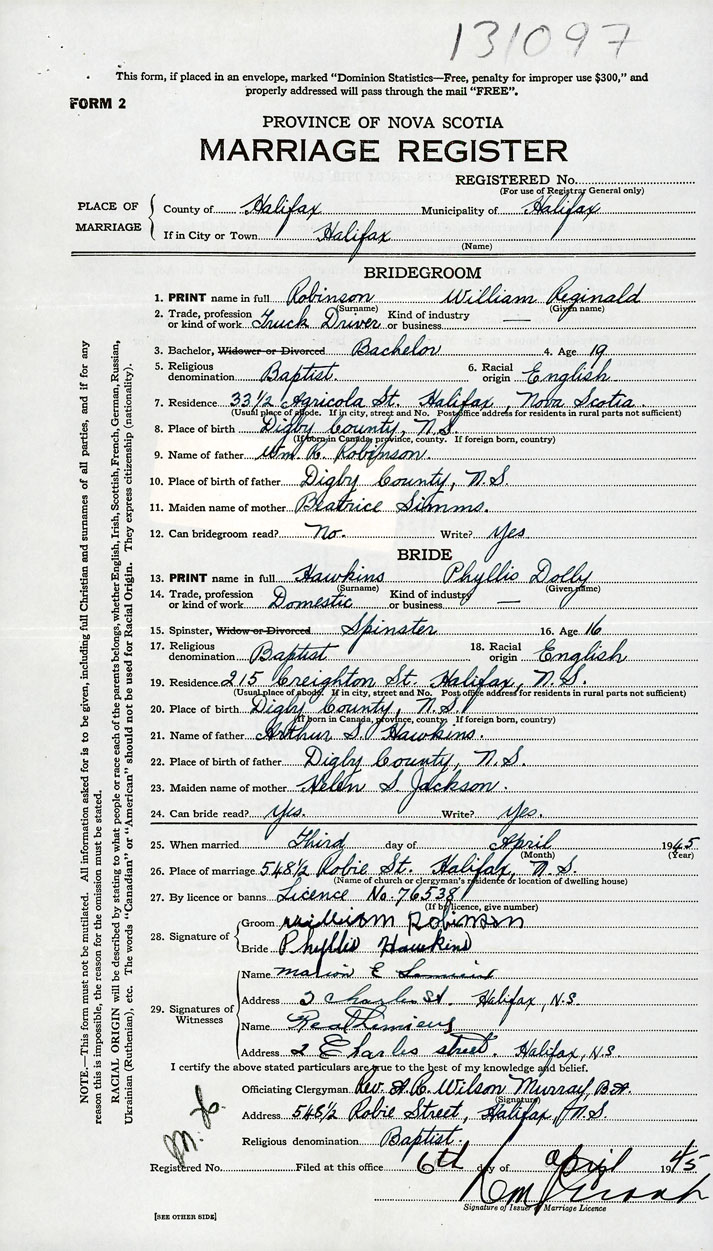 131097
This form, if placed in an envelope, marked "Dominion Statistics—Free, penalty for improper use $300," and
properly addressed will pass through the mail "FREE".
FORM 2
PROVINCE OF NOVA SCOTIA
MARRIAGE REGISTER
REGISTERED No.
(For use of Registrar General only)
PLACE OF MARRIAGE
County of Halifax Municipality of Halifax
If in City or Town Halifax
(Name)
BRIDEGROOM
1. PRINT name in full Robinson William Reginald
(Surname) (Given name)
2. Trade, profession or kind of work Truck Driver Kind of industry or business —
3. Bachelor, Widower or Divorced Bachelor 4. Age 19
5. Religious denomination Baptist. 6. Racial origin English
7. Residence 33 1/2 Agricola St. Halifax, Nova Scotia
(Usual place of abode. If in city, street and No. Post office address for residents in rural parts not sufficient)
8. Place of birth Digby County, N.S.
(If born in Canada, province, county. If foreign born, country)
9. Name of father Wm. R. Robinson.
10. Place of birth of father Digby County, N.S.
11. Maiden name of mother Beatrice Simms.
12. Can bridegroom read? No. Write? Yes
BRIDE
13. PRINT name in full Hawkins Phyllis Dolly
(Surname) (Given name)
14. Trade, profession or kind of work Domestic Kind of industry or business —
15. Spinster, Widow or Divorced Spinster 16. Age 16
17. Religious denomination Baptist 18. Racial origin English
19. Residence 215 Creighton St. Halifax, N.S.
(Usual place of abode. If in city, street and No. Post office address for residents in rural parts not sufficient)
20. Place of birth Digby County, N.S.
(If born in Canada, province, county. If foreign born, country)
21. Name of father Arthur S. Hawkins.
22. Place of birth of father Digby County, N.S.
23. Maiden name of mother Helen S. Jackson.
24. Can bride read? Yes. Write? Yes.
25. When married Third day of April 1945
(Month) (Year)
26. Place of marriage 548 1/2 Robie St. Halifax, N.S.
(Name of church or clergyman's residence or location of dwelling house)
27. By licence or banns Licence No. 76538
(If by licence, give number)
28. Signature of
Groom William Robinson
Bride Phyllis Hawkins
29. Signatures of Witnesses
Name Marion E
Address 2 Charles St. Halifax, N.S.
Name
Address 2 Charles street. Halifax, N.S.
I certify the above stated particulars are true to the best of my knowledge and belief.
Officiating Clergyman Rev. Wilson Murray, B.A.
(Signature)
Address 548 1/2 Robie Street, Halifax, N.S.
Religious denomination Baptist.
Registered No. Filed at this office 6th day of April 1945
Signature of Issuer of Marriage Licence
[SEE OTHER SIDE]
NOTE.—This form must not be mutilated. All information asked for is to be given, including full Christian and surnames of all parties, and if for any
reason this is impossible, the reason for the omission must be stated.
RACIAL ORIGIN will be described by stating to what people or race each of the parents belongs, whether English, Irish, Scottish, French, German, Russian,
Ukrainian (Ruthenian), etc. The words "Canadian" or "American" should not be used for Racial Origin. They express citizenship (nationality).